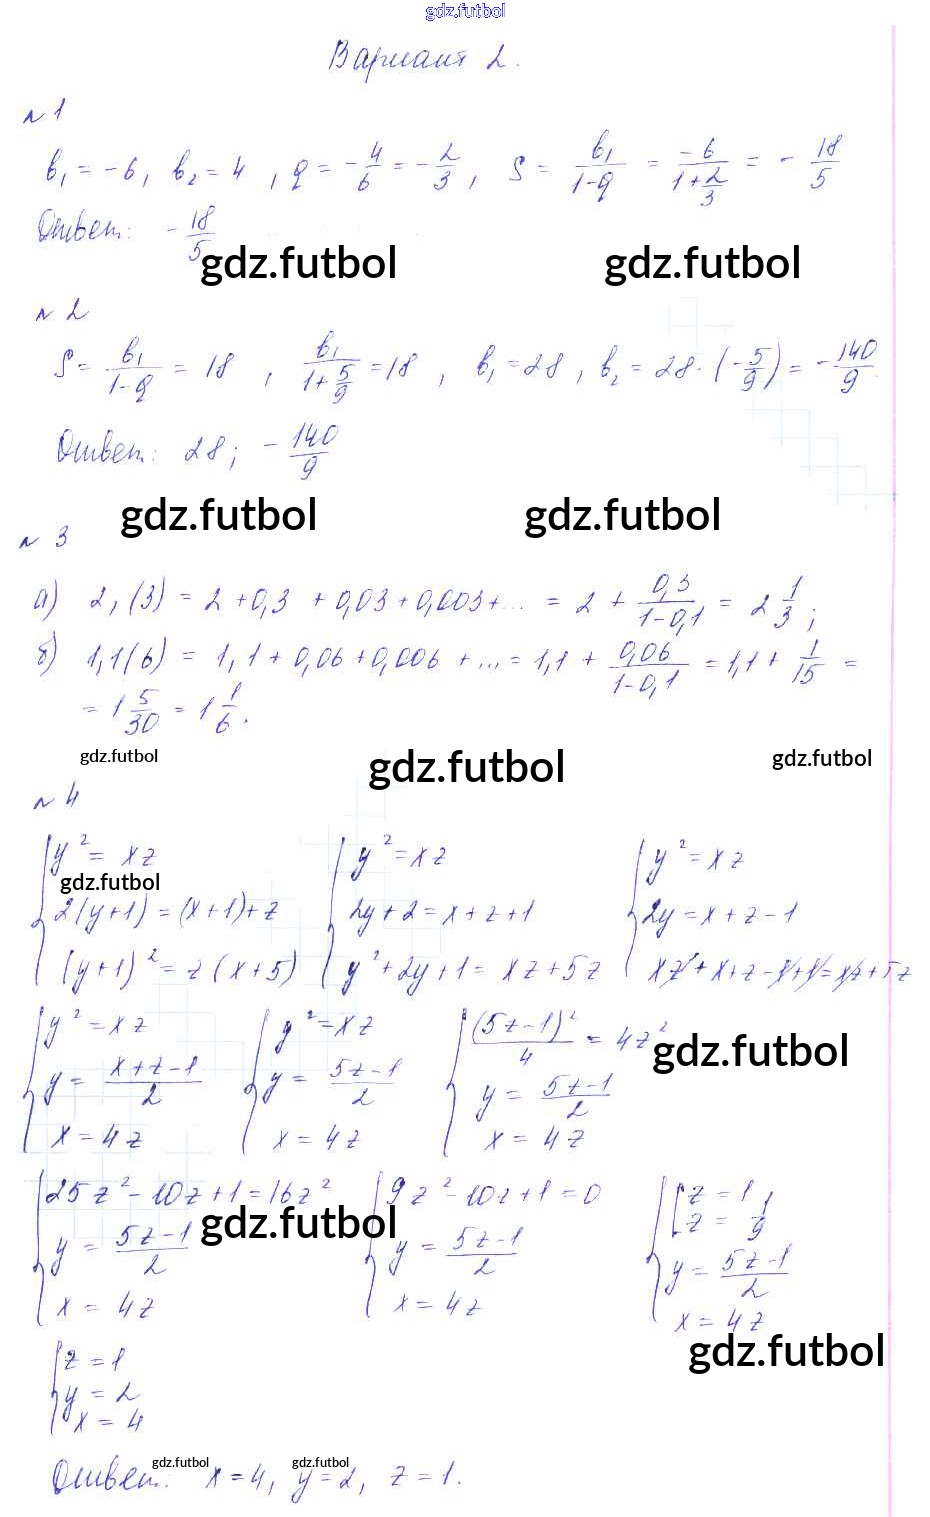 gdz.futbol
Вариант 2.
№1
b₁ = -6, b₂ = 4, q = -4/6 = -2/3, S = b₁/(1-q) = -6/(1+2/3) = -18/5
Ответ: -18/5
gdz.futbol gdz.futbol
№2
S = b₁/(1-q) = 18, b₁/(1+5/9) = 18, b₁ = 28, b₂ = 28·(-5/9) = -140/9.
Ответ: 28; -140/9
gdz.futbol gdz.futbol
№3
а) 2,(3) = 2 + 0,3 + 0,03 + 0,003 + ... = 2 + 0,3/(1-0,1) = 2 1/3;
б) 1,1(6) = 1,1 + 0,06 + 0,006 + ... = 1,1 + 0,06/(1-0,1) = 1,1 + 1/15 =
= 1 5/30 = 1 1/6.
gdz.futbol gdz.futbol gdz.futbol
№4
{ y² = xz { y² = xz { y² = xz
gdz.futbol
2(y+1) = (x+1)+z 2y+2 = x+z+1 2y = x+z-1
(y+1)² = z(x+5) y²+2y+1 = xz+5z xz+x+z-1+1=xz+5z
{ y² = xz { y² = xz { (5z-1)²/4 = 4z²
gdz.futbol
y = (x+z-1)/2 y = (5z-1)/2 y = (5z-1)/2
x = 4z x = 4z x = 4z
{ 25z²-10z+1=16z² { 9z²-10z+1=0 { [ z = 1
z = 1/9
gdz.futbol
y = (5z-1)/2 y = (5z-1)/2 y = (5z-1)/2
x = 4z x = 4z x = 4z
gdz.futbol
{ z = 1
y = 2
x = 4
gdz.futbol gdz.futbol
Ответ: x=4, y=2, z=1.